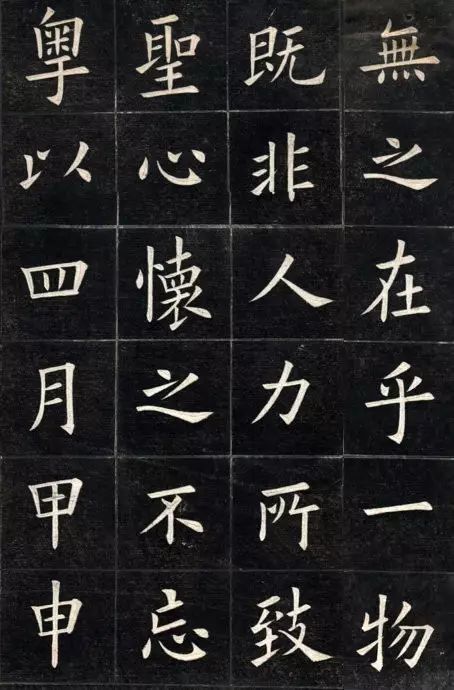 無之在乎一物
既非人力所致
聖心懷之不忘
粤以四月甲申